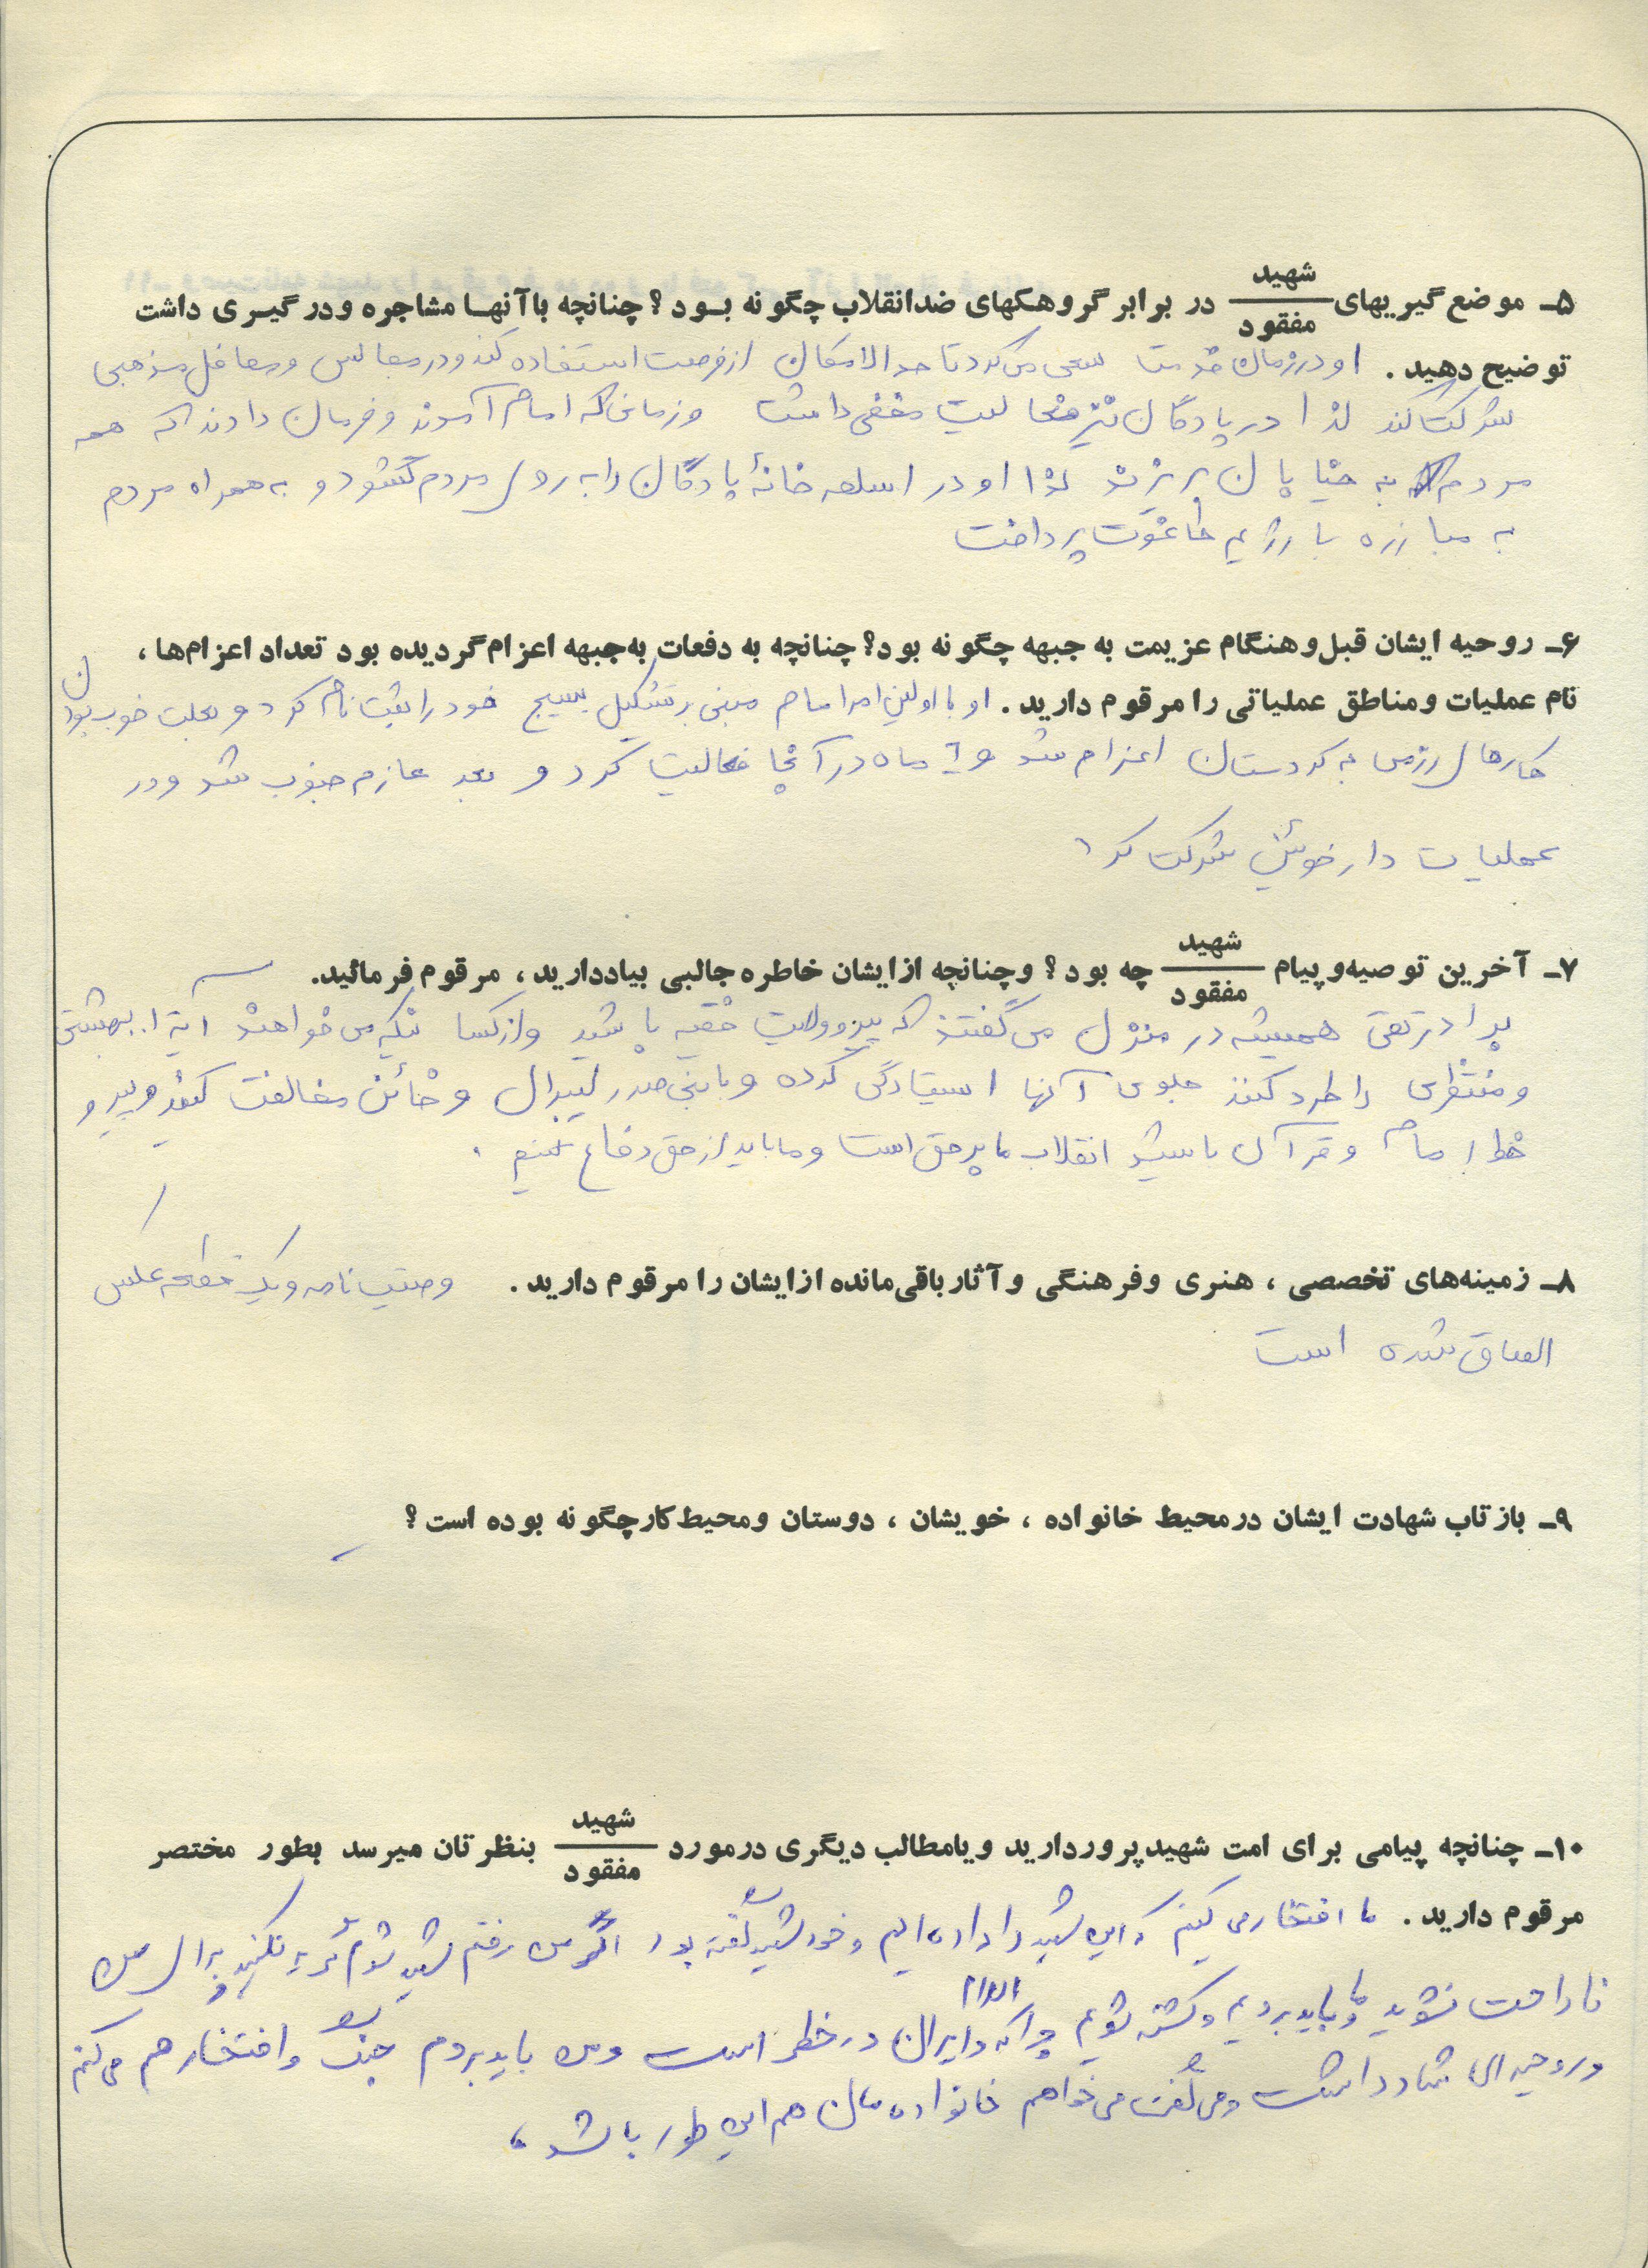 ۵ـ موضع‌گیریهای شهید/مفقود در برابر گروهکهای ضدانقلاب چگونه بود؟ چنانچه باآنها مشاجره و درگیری داشت
توضیح دهید. او در زمان خدمت سعی می کرد تا حد الامکان از فرصت استفاده کند و در مجالس و محافل مذهبی
شرکت کند لذا در پادگان نیز فعالیت مخفی داشت و زمانی که امام آمدند و فرمان دادند که همه
مردم به خیابان بریزند لذا او در اسلحه خانهٔ پادگان را به روی مردم گشود و به همراه مردم
به مبارزه با رژیم طاغوت پرداخت
۶ـ روحیه ایشان قبل و هنگام عزیمت به جبهه چگونه بود؟ چنانچه به دفعات به‌جبهه اعزام گردیده بود تعداد اعزام‌ها،
نام عملیات و مناطق عملیاتی را مرقوم دارید. او با اولین امر امام مبنی بر تشکیل بسیج خود را ثبت نام کرد و بعلت خوب بودن
کارهای رزمی به کردستان اعزام شد و ماه در آنجا فعالیت کرد و بعد عازم جنوب شد و در
عملیات دارخوئین شرکت کرد
۷ـ آخرین توصیه و پیام شهید/مفقود چه بود؟ و چنانچه ازایشان خاطره جالبی بیاددارید، مرقوم فرمائید.
برادر تقی همیشه در منزل می گفتند که پیرو ولایت فقیه باشید و از کسانیکه می خواهند آیة ا.. بهشتی
و منتظری را طرد کنند جلوی آنها ایستادگی کرده و با بنی صدر لیبرال و خائن مخالفت کنید و پیرو
خط امام و قرآن باشید انقلاب ما بر حق است و ما باید از حق دفاع کنیم .
۸ـ زمینه‌های تخصصی، هنری و فرهنگی و آثار باقی‌مانده ازایشان را مرقوم دارید. وصیت نامه و یک قطعه عکس
الصاق شده است
۹ـ بازتاب شهادت ایشان درمحیط خانواده، خویشان، دوستان و محیط کار چگونه بوده است؟
۱۰ـ چنانچه پیامی برای امت شهیدپرور دارید و یامطالب دیگری درمورد شهید/مفقود بنظرتان میرسد بطور مختصر
مرقوم دارید. ما افتخار می کنیم که این شهید را داده ایم و خود شهید گفته بود اگر من رفتم شهید شدم گریه نکنید برای من
ناراحت نشوید ما باید برویم و کشته شویم چرا که اسلام و ایران در خطر است و من باید بروم جنگ و افتخار هم می کنم
و روحیه ای شاد داشت و می گفت می خواهم خانواده مان هم این طور باشد،